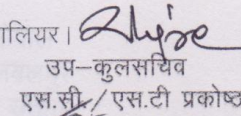 ालियर।
उप–कुलसचिव
एस.सी./एस.टी प्रकोष्ठ